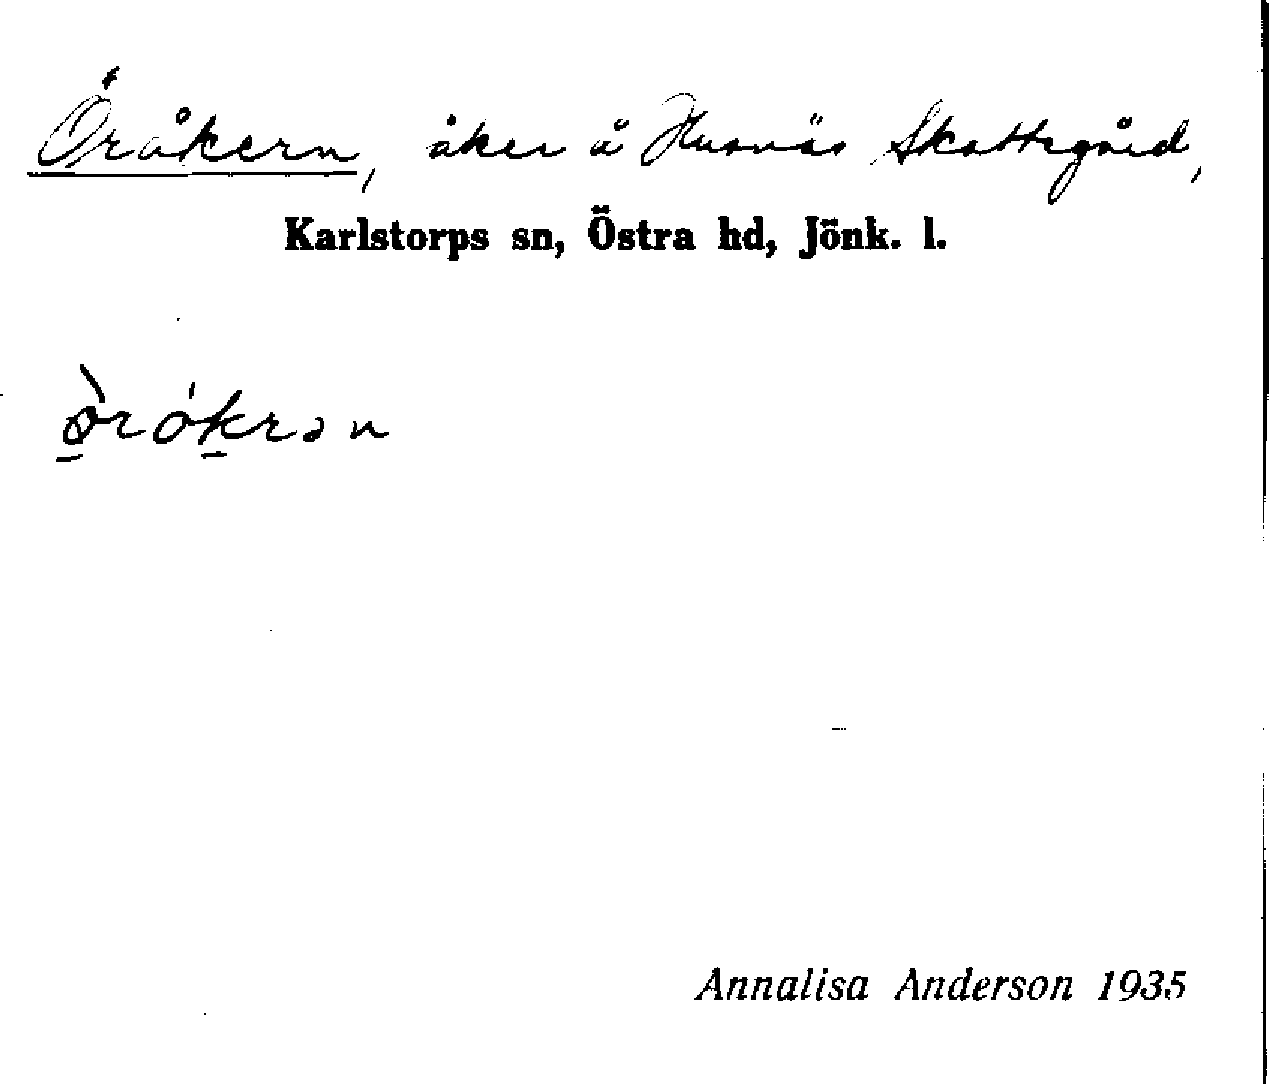 Öråkern, åker å Husnäs Skattegård,
Karlstorps sn, Östra hd, Jönk. l.
ø̀rókrən
Annalisa Anderson 1935